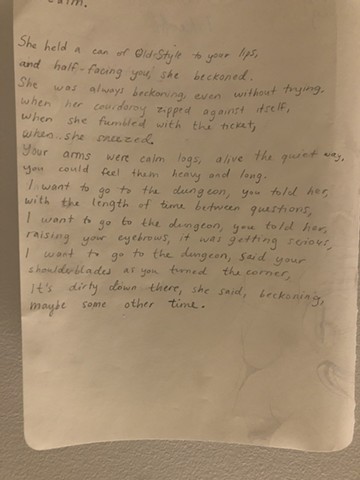 calm.
She held a can of Old Style to your lips,
and half-facing you, she beckoned.
She was always beckoning, even without trying,
when her corduroy zipped against itself,
when she fumbled with the ticket,
when she sneezed.
Your arms were calm logs, alive the quiet way,
you could feel them heavy and long.
I want to go to the dungeon, you told her,
with the length of time between questions,
I want to go to the dungeon, you told her,
raising your eyebrows, it was getting serious,
I want to go to the dungeon, said your
shoulderblades as you turned the corner,
It's dirty down there, she said, beckoning,
maybe some other time.